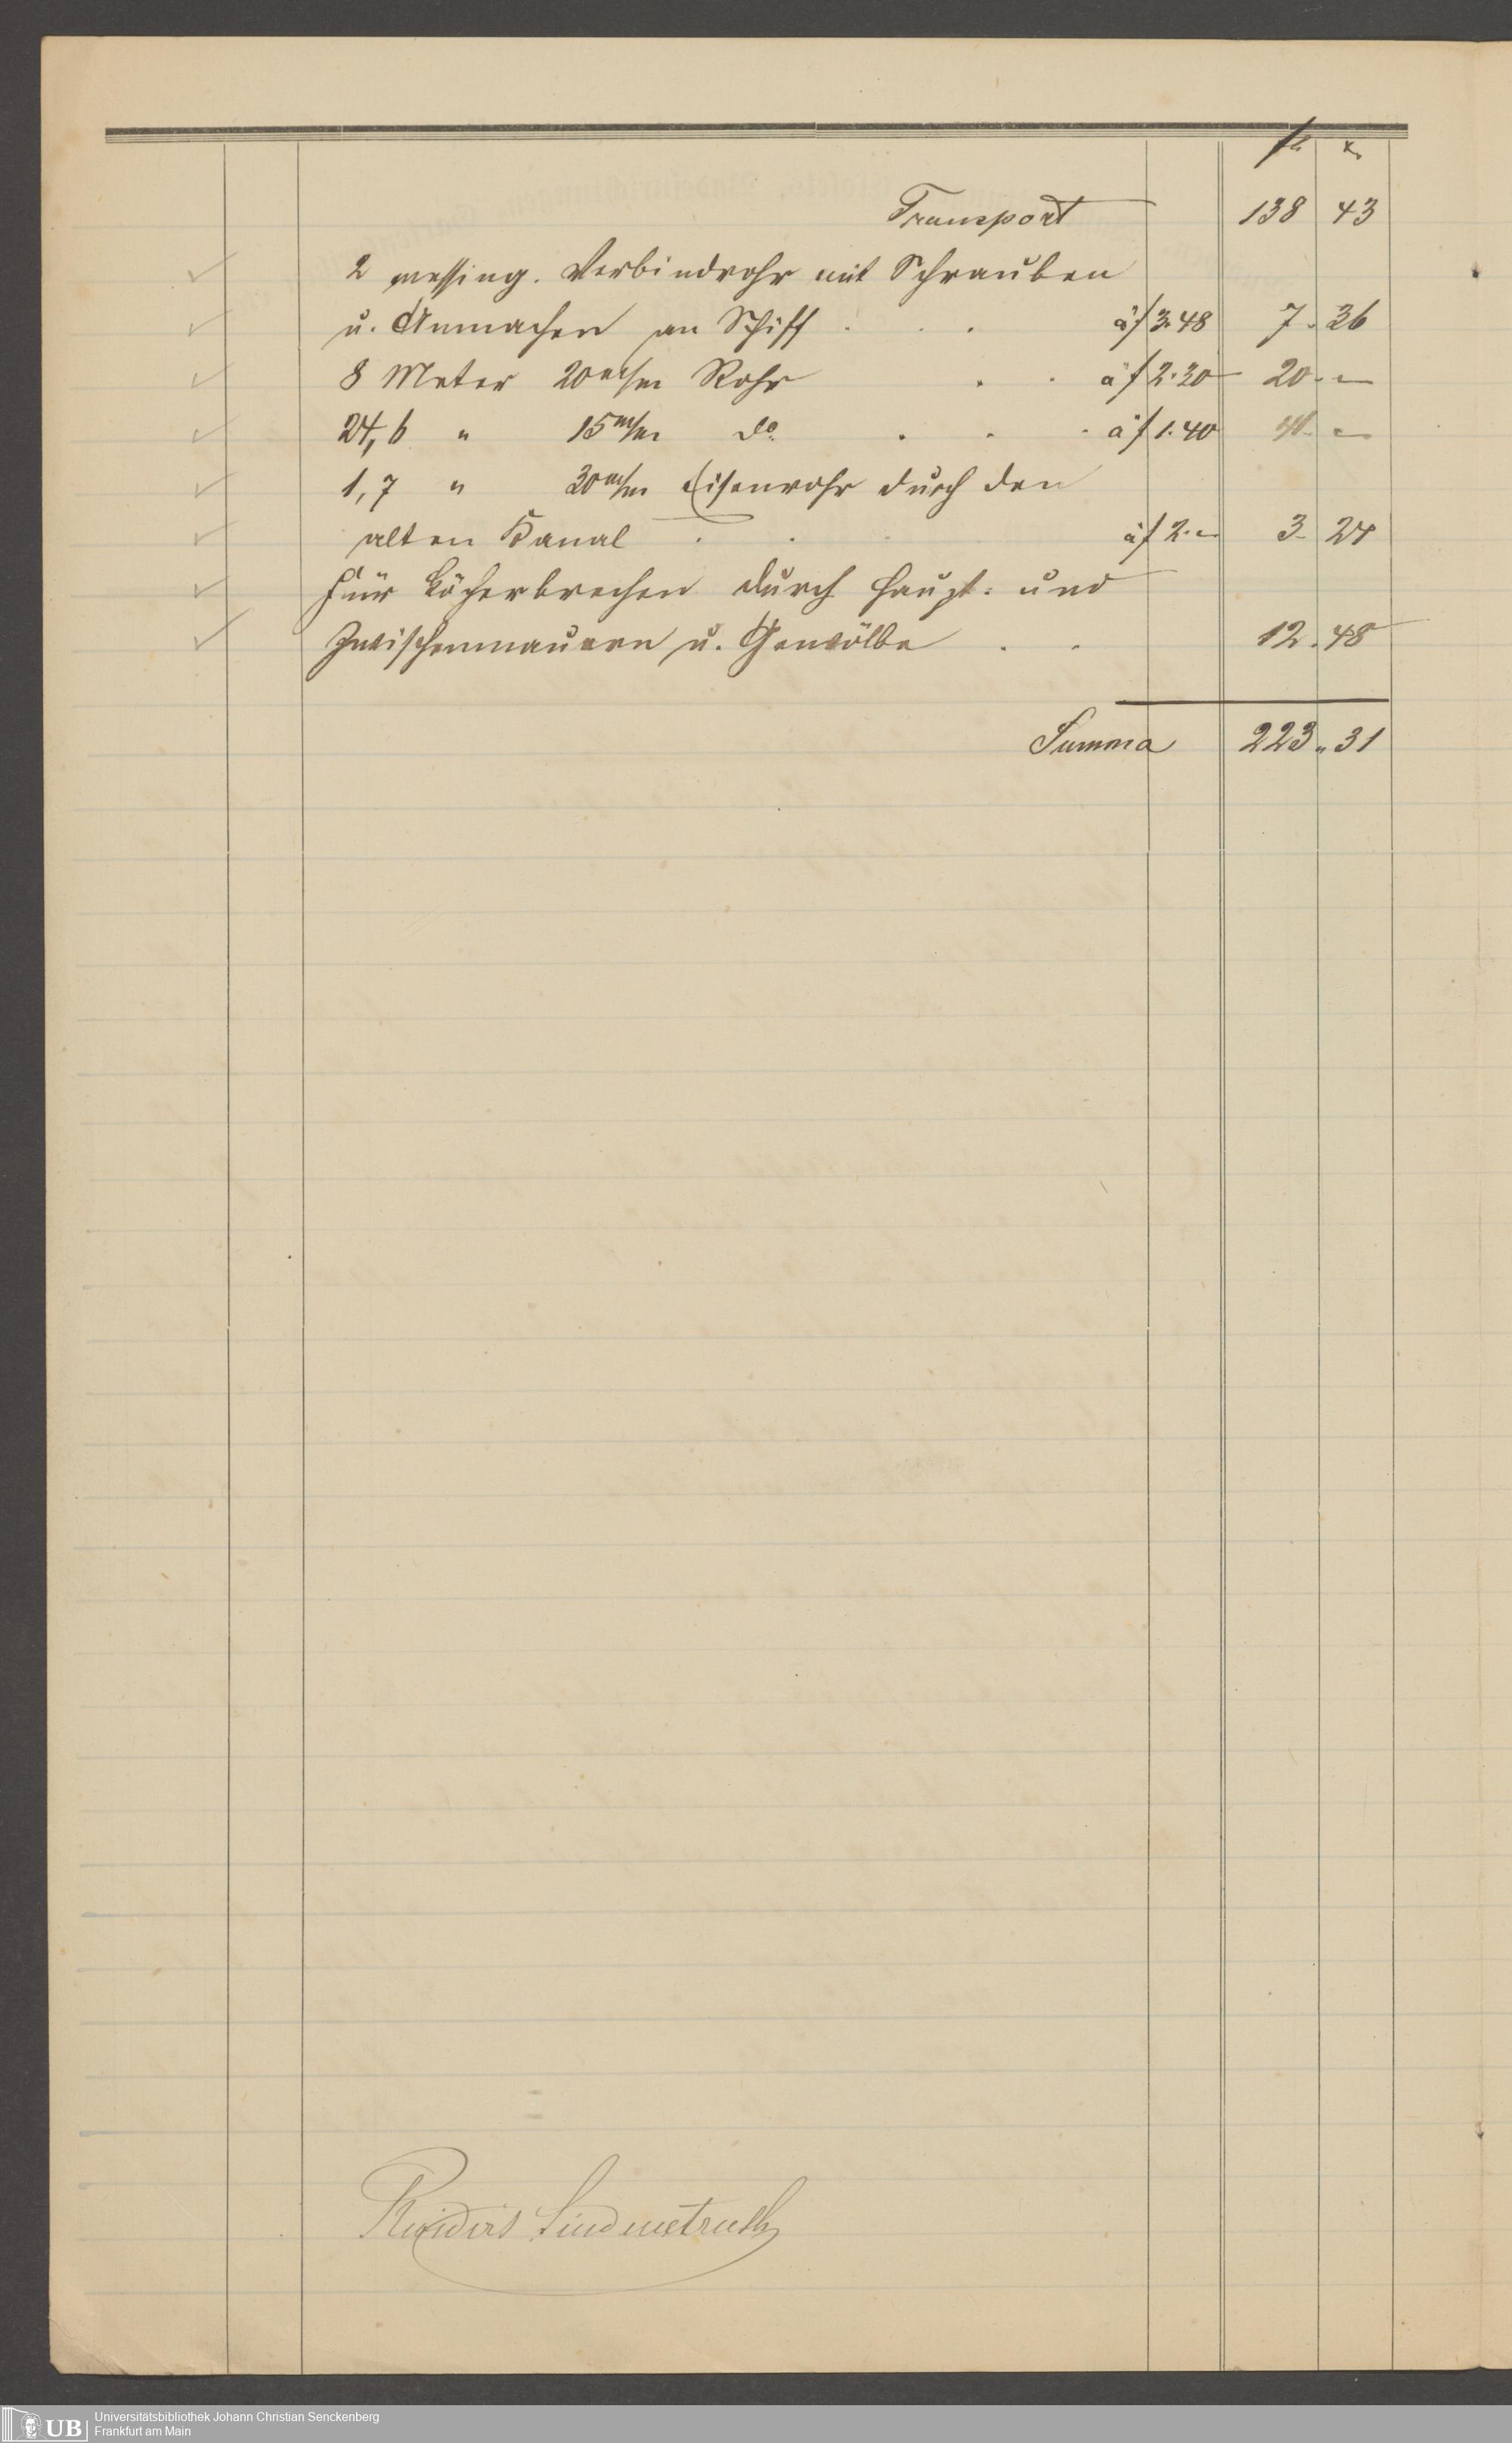 fl. xr.
Transport 138 43
2 messing. Verbindrohr mit Schrauben
u. Anmachen an Schiff . . . à f 3.48 7. 36
8 Meter 20 m/m Rohr . . à f 2.30 20. –
24,6 " 15 m/m do . . . à f 1.40 41. –
1,7 " 30 m/m Eisenrohr durch den
alten Kanal . . . à f 2. – 3. 24
Für Löcherbrechen durch Haupt- und
Zwischenmauern u. Gewölbe . . 12. 48
Summa 223 " 31
Universitätsbibliothek Johann Christian Senckenberg
Frankfurt am Main
UB